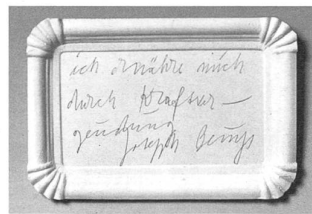 ich ernähre mich
durch Kraftver–
geudung
Joseph Beuys